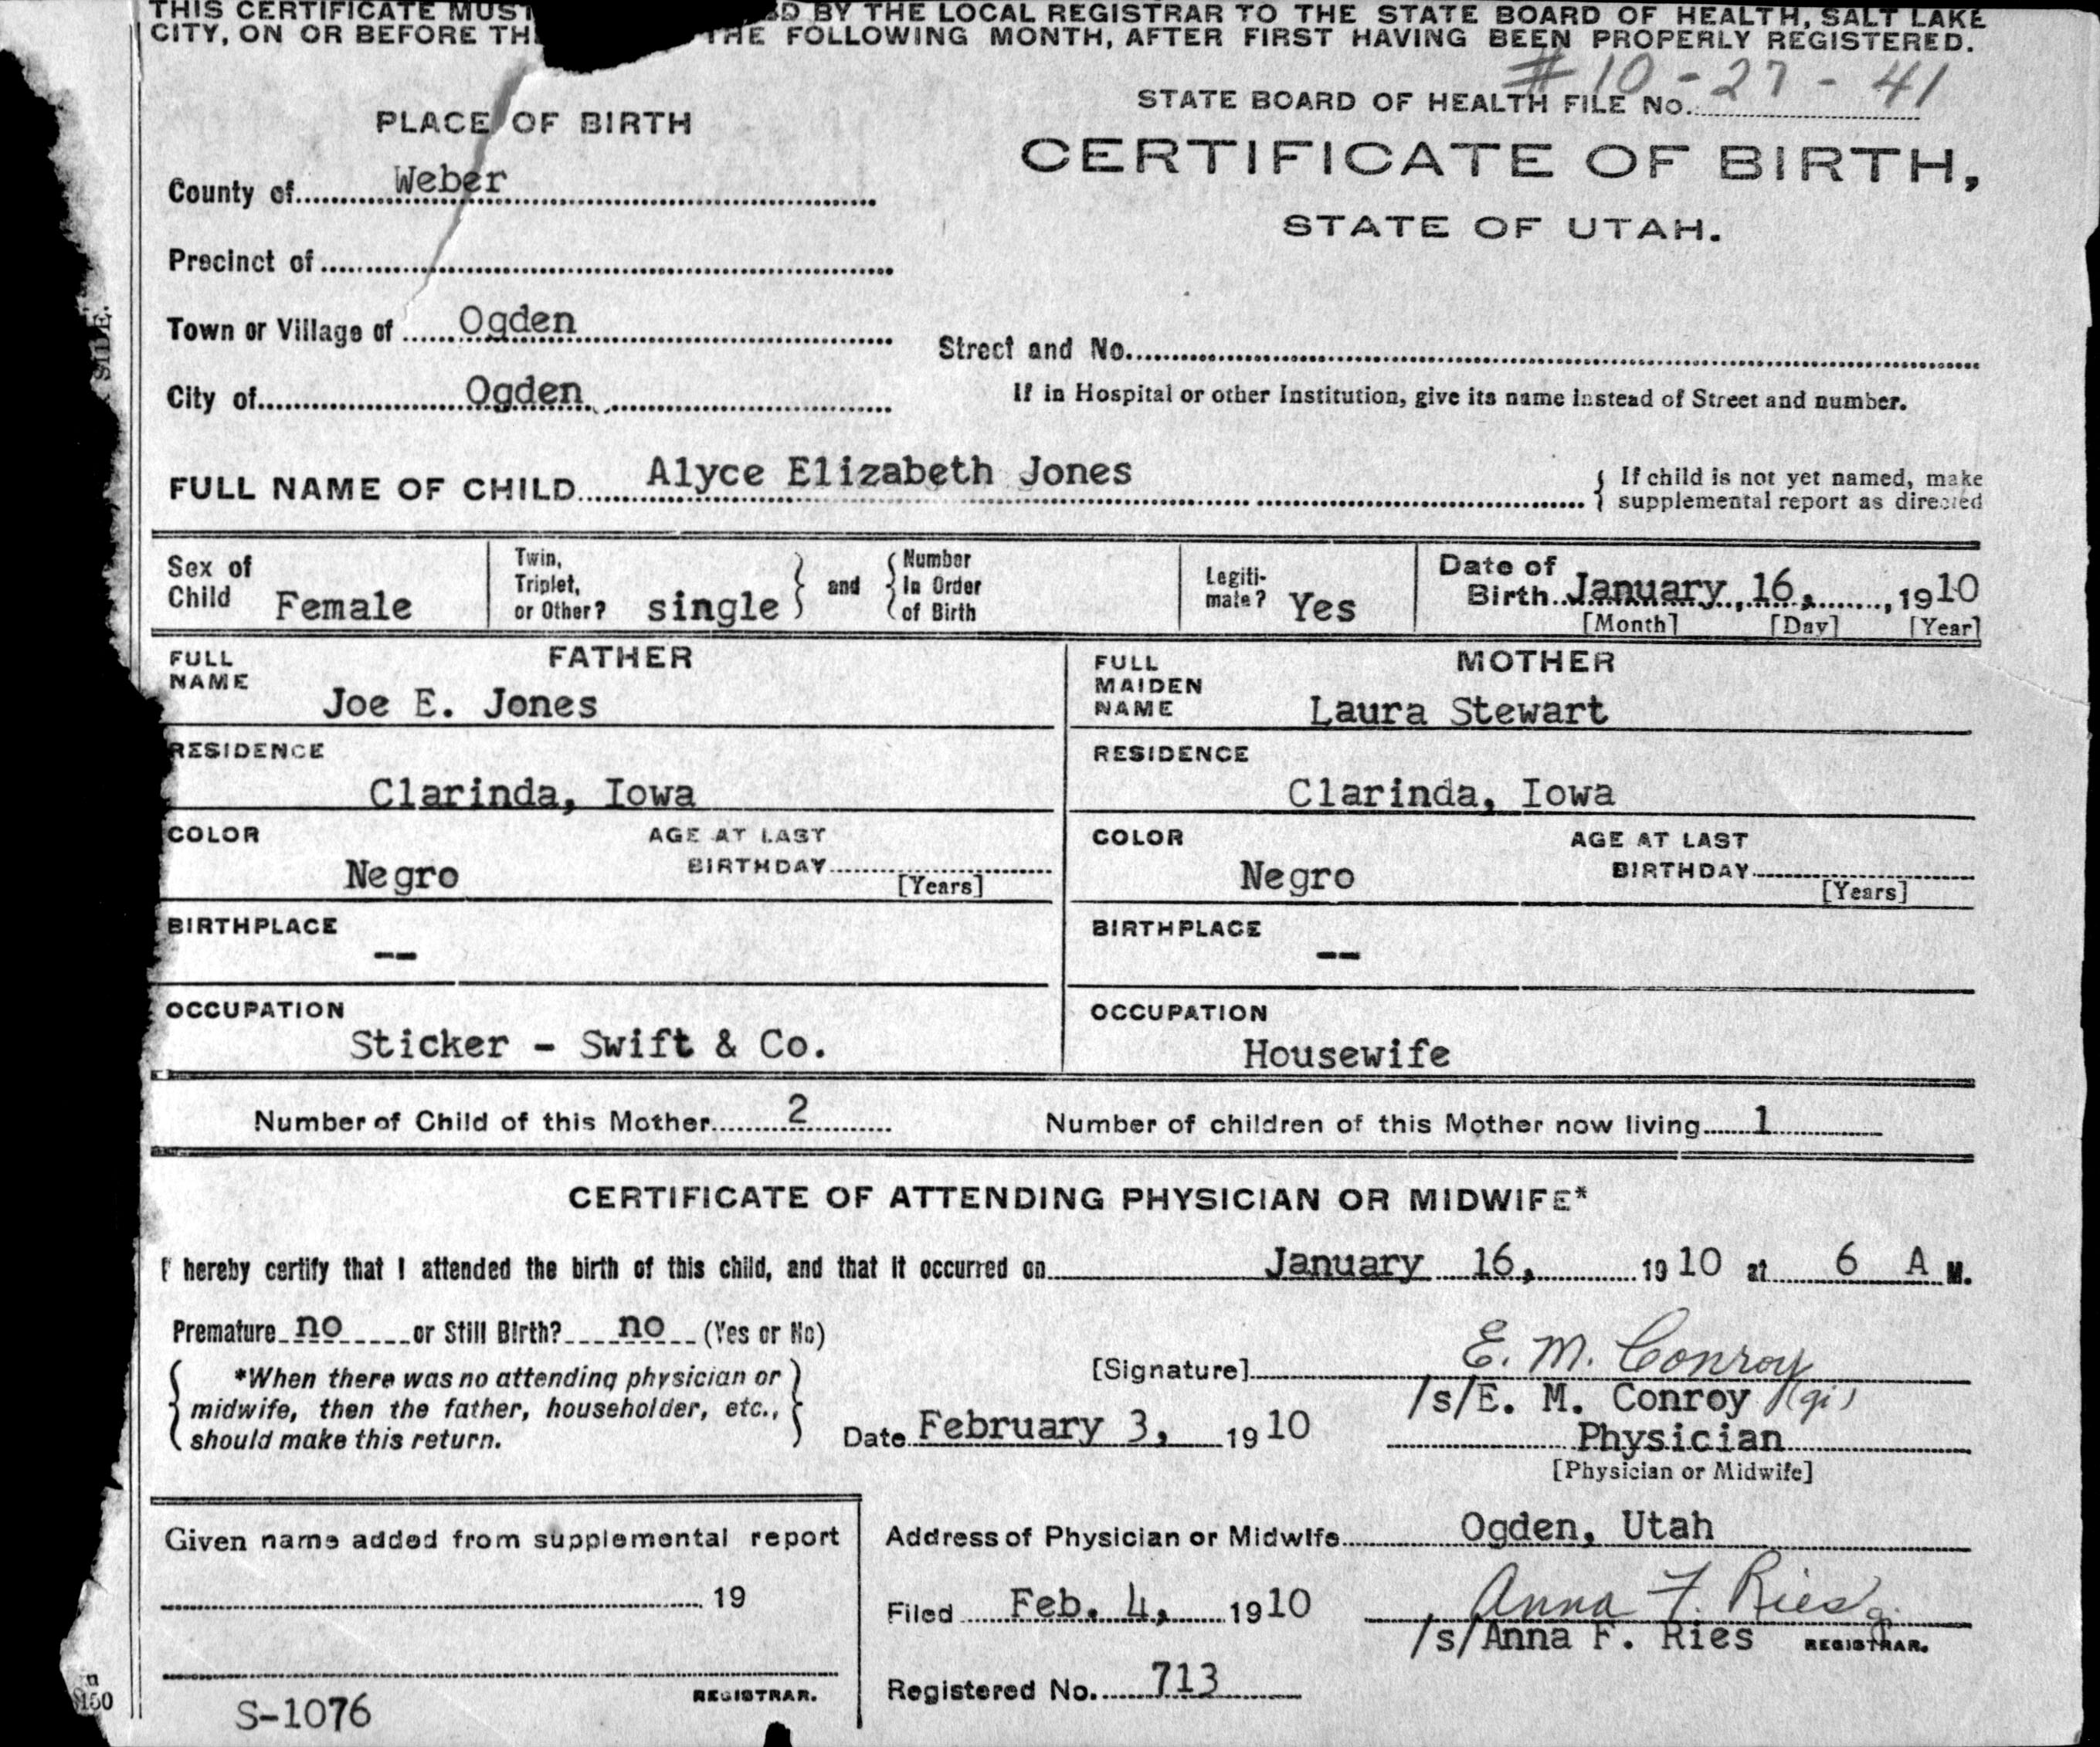 THIS CERTIFICATE MUST BY THE LOCAL REGISTRAR TO THE STATE BOARD OF HEALTH, SALT LAKE
CITY, ON OR BEFORE THE FOLLOWING MONTH, AFTER FIRST HAVING BEEN PROPERLY REGISTERED.
# 10-27-41
STATE BOARD OF HEALTH FILE No.
PLACE OF BIRTH
CERTIFICATE OF BIRTH,
STATE OF UTAH.
County of Weber
Precinct of
Town or Village of Ogden
Street and No.
City of Ogden
If in Hospital or other Institution, give its name instead of Street and number.
FULL NAME OF CHILD Alyce Elizabeth Jones
If child is not yet named, make
supplemental report as directed
Sex of
Child Female
Twin,
Triplet,
or Other? single
and
Number
In Order
of Birth
Legiti-
mate? Yes
Date of
Birth January 16, 1910
[Month] [Day] [Year]
FATHER
FULL
NAME
Joe E. Jones
RESIDENCE
Clarinda, Iowa
COLOR
Negro
AGE AT LAST
BIRTHDAY
[Years]
BIRTHPLACE
--
OCCUPATION
Sticker - Swift & Co.
MOTHER
FULL
MAIDEN
NAME
Laura Stewart
RESIDENCE
Clarinda, Iowa
COLOR
Negro
AGE AT LAST
BIRTHDAY
[Years]
BIRTHPLACE
--
OCCUPATION
Housewife
Number of Child of this Mother 2
Number of children of this Mother now living 1
CERTIFICATE OF ATTENDING PHYSICIAN OR MIDWIFE*
I hereby certify that I attended the birth of this child, and that it occurred on January 16, 1910 at 6 A M.
Premature no or Still Birth? no (Yes or No)
*When there was no attending physician or
midwife, then the father, householder, etc.,
should make this return.
[Signature] E. M. Conroy
/s/E. M. Conroy (gi)
Date February 3, 1910
Physician
[Physician or Midwife]
Given name added from supplemental report
19
REGISTRAR.
S-1076
Address of Physician or Midwife Ogden, Utah
Filed Feb. 4, 1910
Anna F. Ries
/s/Anna F. Ries REGISTRAR.
Registered No. 713
SIDE.